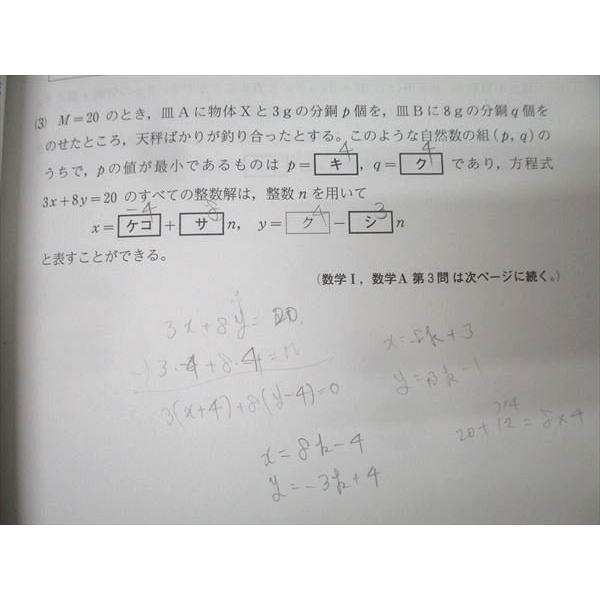 (3) M=20 のとき，皿Aに物体Xと3gの分銅p個を，皿Bに8gの分銅q個を
のせたところ，天秤ばかりが釣り合ったとする。このような自然数の組(p, q)の
4 4
うちで，pの値が最小であるものは p=キ，q=ク であり，方程式
3x+8y=20 のすべての整数解は，整数nを用いて
-4 8 4 3
x=ケコ+サn， y=ク-シn
と表すことができる。
(数学Ⅰ，数学A 第3問 は次ページに続く。)
3x+8y=20
3(x+4)+8(y-4)=0
x=8k-4
y=-3k+4
20+12=8×4